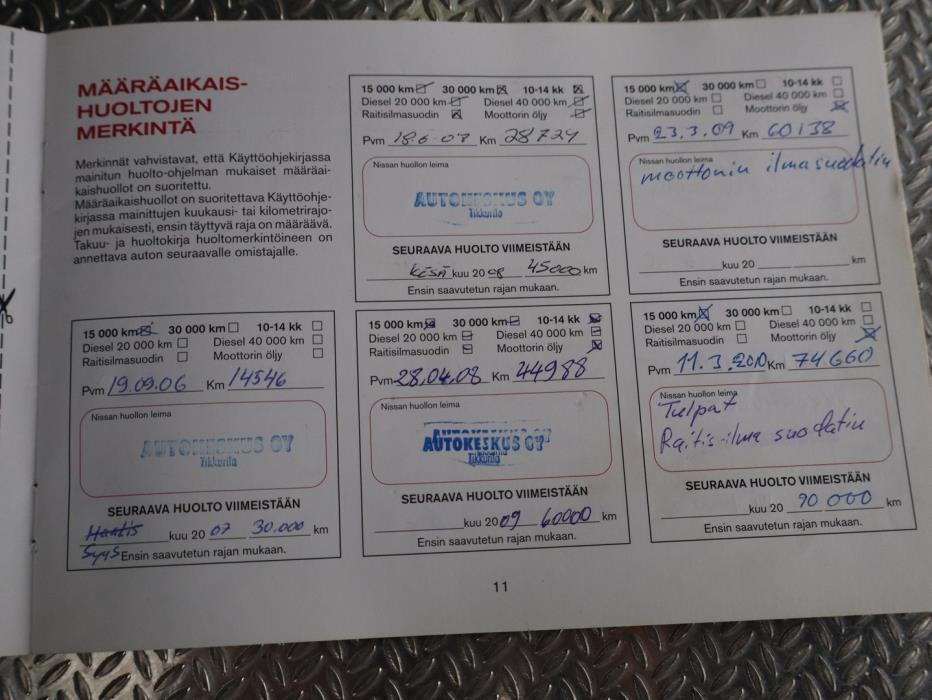 MÄÄRÄAIKAIS-
HUOLTOJEN
MERKINTÄ
Merkinnät vahvistavat, että Käyttöohjekirjassa
mainitun huolto-ohjelman mukaiset määräai-
kaishuollot on suoritettu.
Määräaikaishuollot on suoritettava Käyttöohje-
kirjassa mainittujen kuukausi- tai kilometrirajo-
jen mukaisesti, ensin täyttyvä raja on määräävä.
Takuu- ja huoltokirja huoltomerkintöineen on
annettava auton seuraavalle omistajalle.
15 000 km 30 000 km 10-14 kk
Diesel 20 000 km Diesel 40 000 km
Raitisilmasuodin Moottorin öljy
Pvm 18.6.07 Km 28724
Nissan huollon leima
AUTOKESKUS OY
Tikkurila
SEURAAVA HUOLTO VIIMEISTÄÄN
KESÄ kuu 2008 45000 km
Ensin saavutetun rajan mukaan.
15 000 km 30 000 km 10-14 kk
Diesel 20 000 km Diesel 40 000 km
Raitisilmasuodin Moottorin öljy
Pvm 23.3.09 Km 60138
Nissan huollon leima
moottorin ilmasuodatin
SEURAAVA HUOLTO VIIMEISTÄÄN
kuu 20 km
Ensin saavutetun rajan mukaan.
15 000 km 30 000 km 10-14 kk
Diesel 20 000 km Diesel 40 000 km
Raitisilmasuodin Moottorin öljy
Pvm 19.09.06 Km 14546
Nissan huollon leima
AUTOKESKUS OY
Tikkurila
SEURAAVA HUOLTO VIIMEISTÄÄN
kuu 20 07 30.000 km
Syys Ensin saavutetun rajan mukaan.
15 000 km 30 000 km 10-14 kk
Diesel 20 000 km Diesel 40 000 km
Raitisilmasuodin Moottorin öljy
Pvm 28.04.08 Km 44988
Nissan huollon leima
AUTOKESKUS OY
Tikkurila
SEURAAVA HUOLTO VIIMEISTÄÄN
kuu 2009 60000 km
Ensin saavutetun rajan mukaan.
15 000 km 30 000 km 10-14 kk
Diesel 20 000 km Diesel 40 000 km
Raitisilmasuodin Moottorin öljy
Pvm 11.3.2010 Km 74660
Nissan huollon leima
Tulpat
Raitis-ilma suodatin
SEURAAVA HUOLTO VIIMEISTÄÄN
kuu 20 90 000 km
Ensin saavutetun rajan mukaan.
11